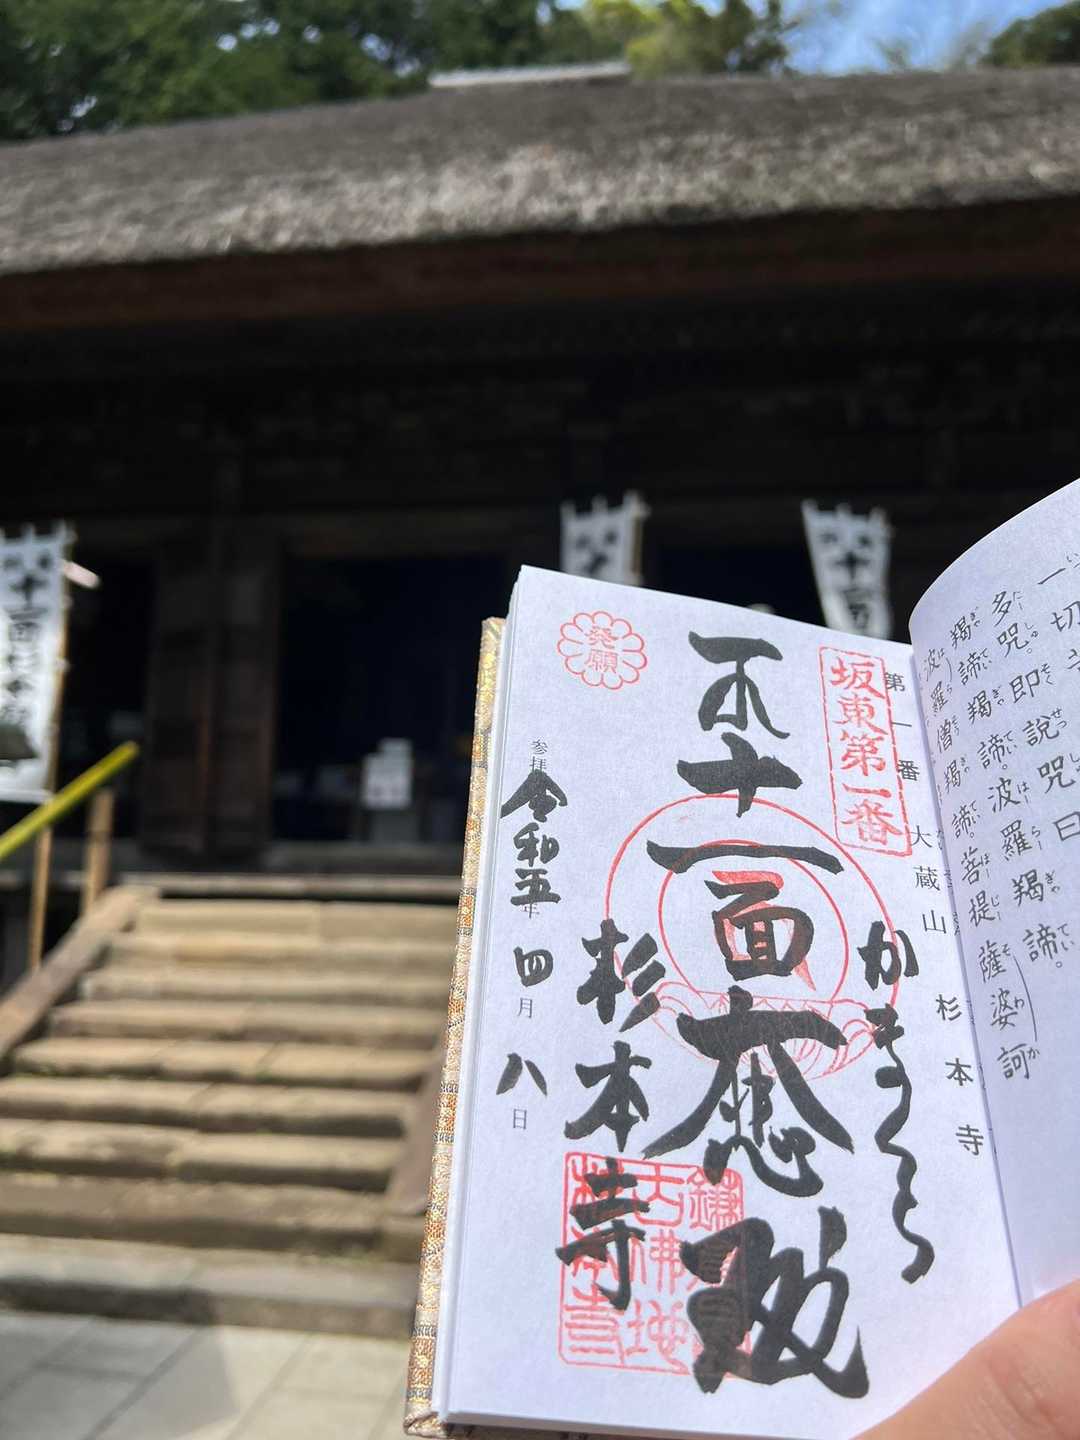 一切苦
多咒即說咒曰
羯諦羯諦波羅羯諦。
波羅僧羯諦菩提薩婆訶
第一番 大蔵山 杉本寺
坂東第一番
かまくら
十一面大悲殿
発願
杉本寺
鎌倉
古佛地
杉本寺
参拝 令和五年四月八日
十一面杉本
十一
十一面